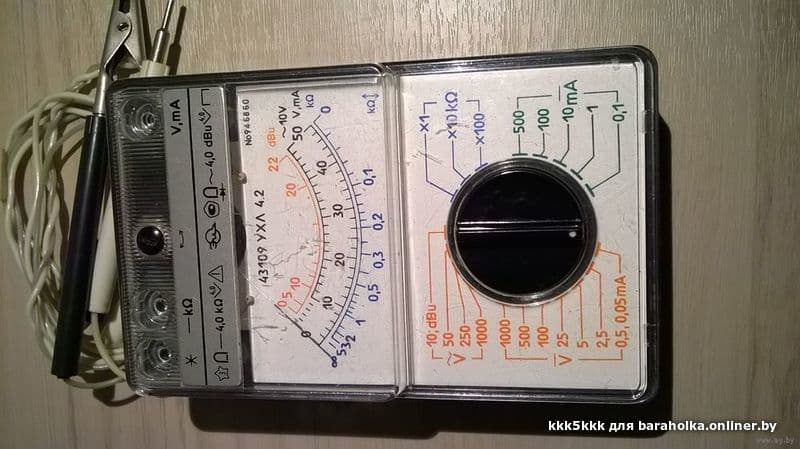 V,mA
— kΩ
*
— 4,0 kΩ
~ 4,0 dBu
No 946860
43109 УХЛ 4.2
dBu
22
20
10
0,5
~10V
V,mA
50
40
30
20
10
0
kΩ
0
0,1
0,2
0,3
0,5
1
2
3
5
∞
kΩ
×1
×10 kΩ
×100
500
100
10 mA
1
0,1
10, dBu
50
V 250
1000
1000
500
100
V 25
5
2,5
0,5, 0,05mA
kkk5kkk для baraholka.onliner.by
www.ay.by